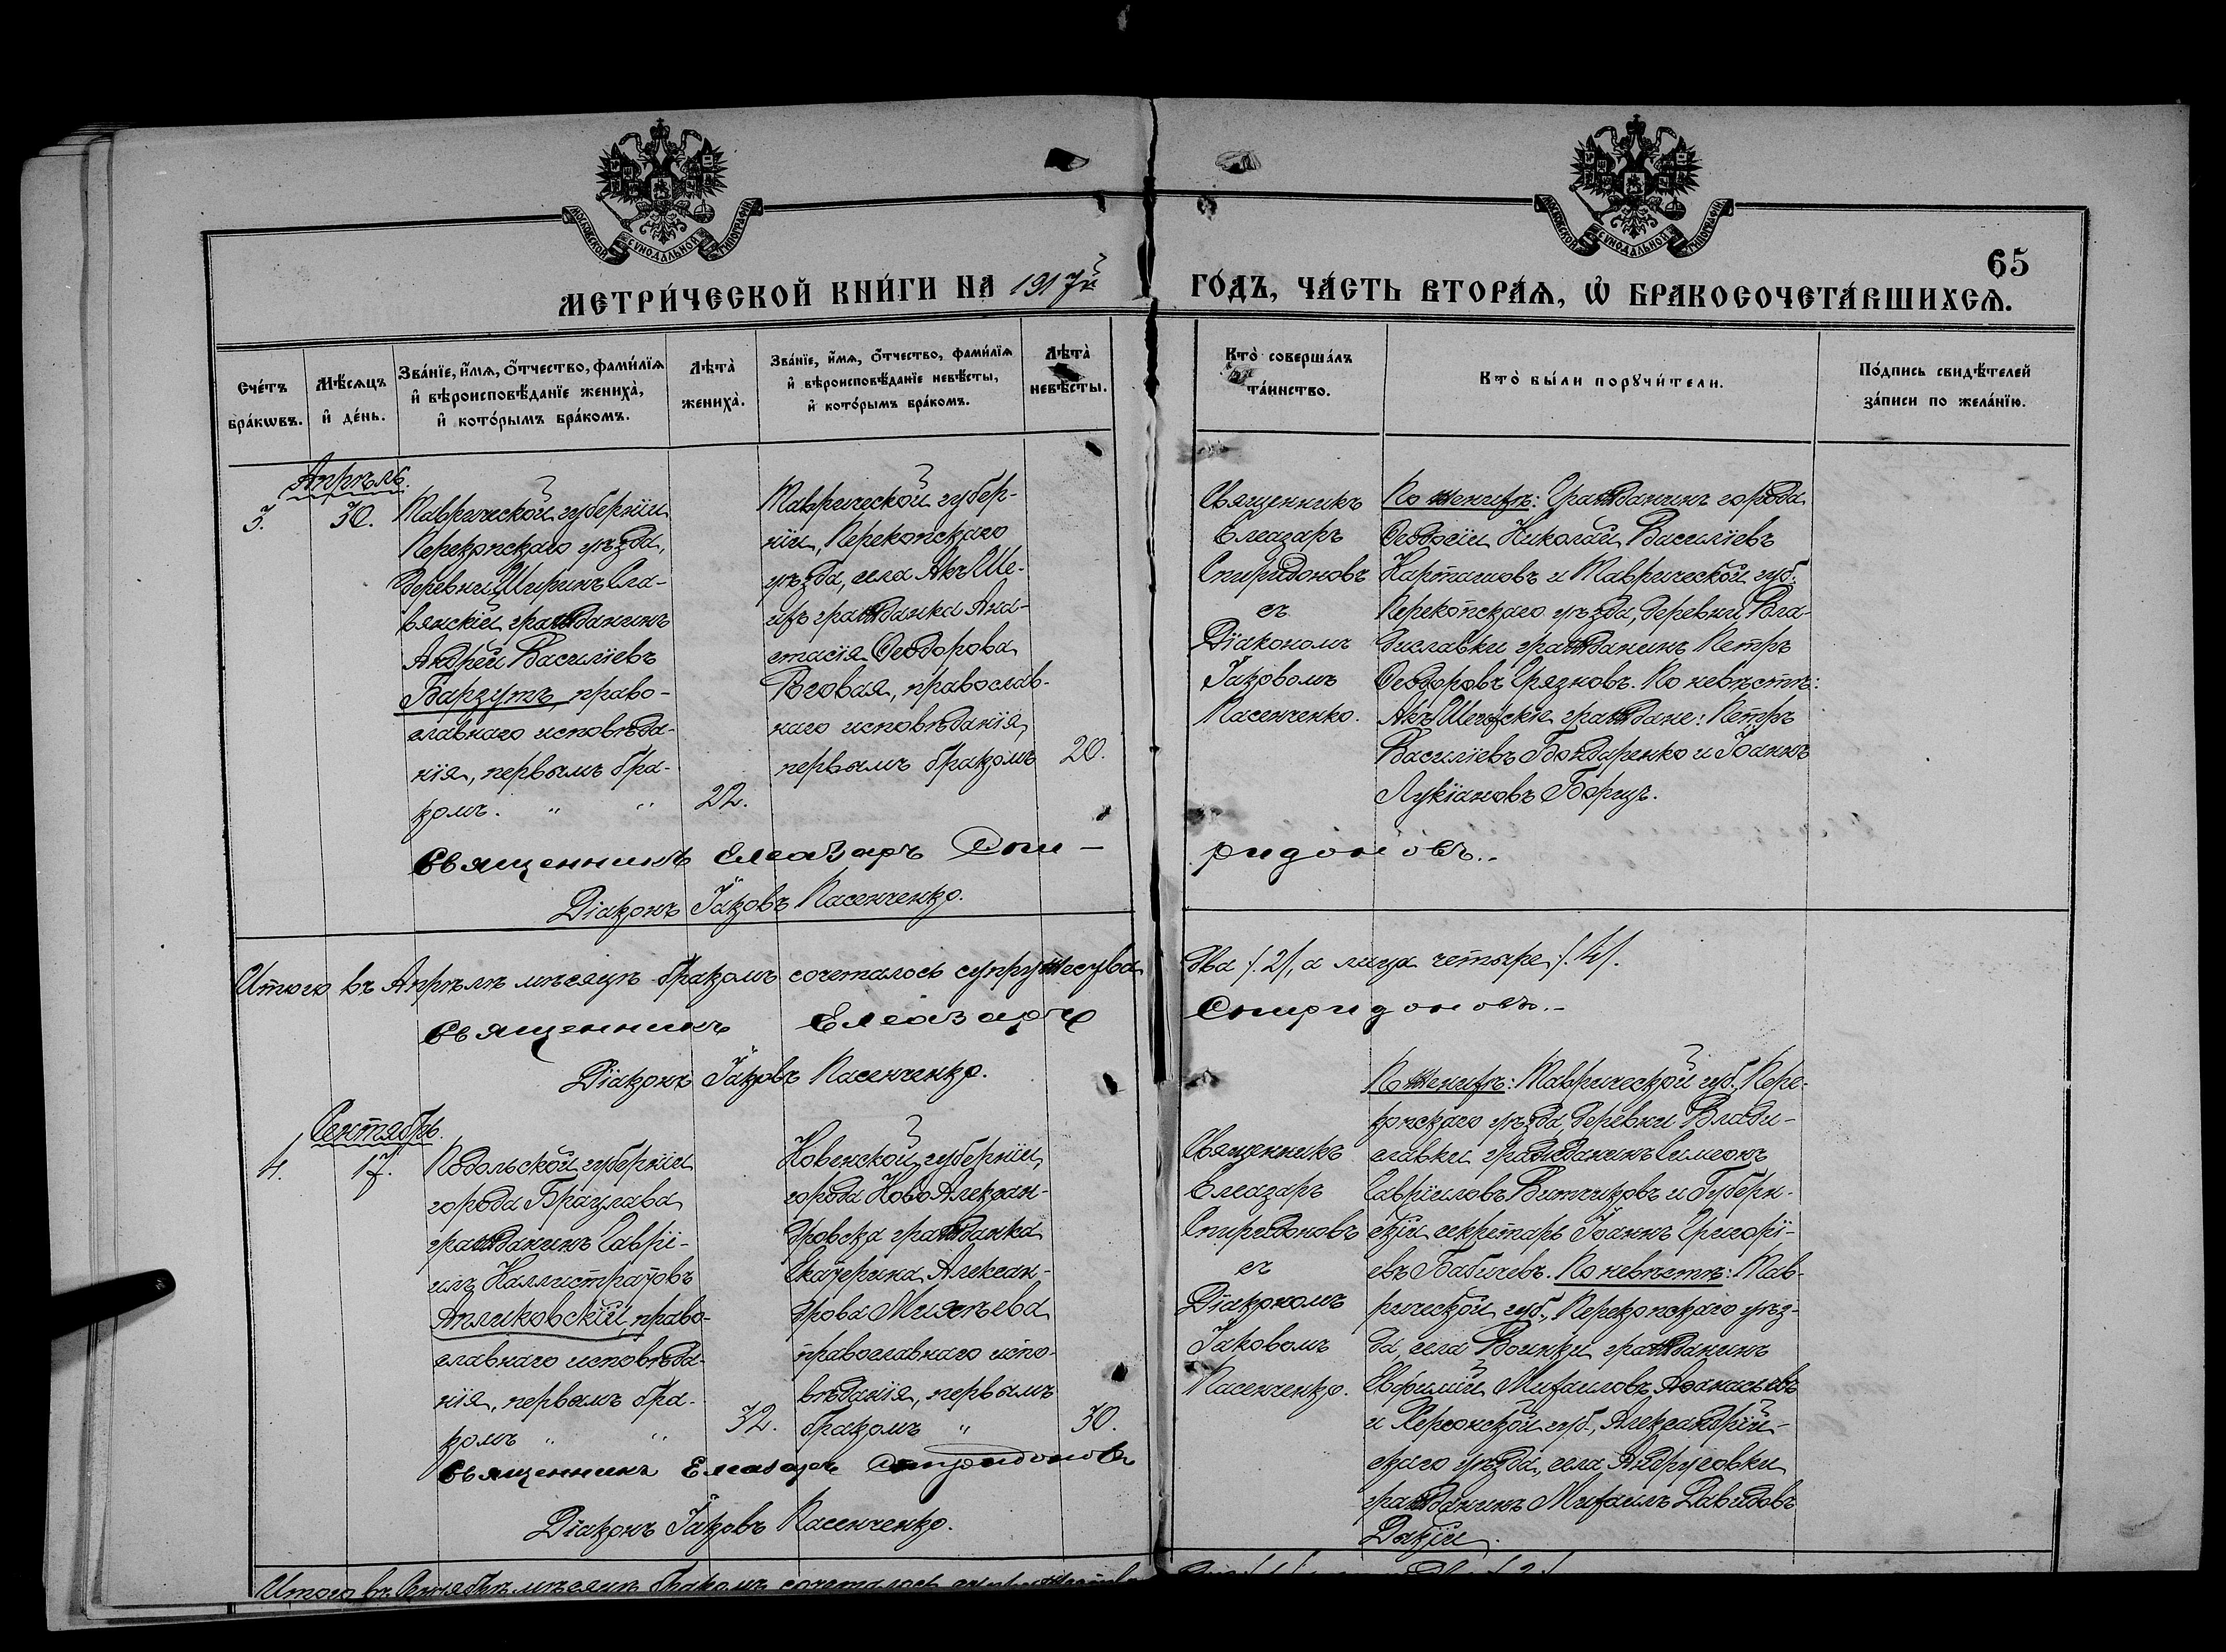 МОСКОВСКОЙ СѴНОДАЛЬНОЙ ТИПОГРАФІИ
МОСКОВСКОЙ СѴНОДАЛЬНОЙ ТИПОГРАФІИ
65
МЕТРИ́ЧЕСКОЙ КНИ́ГИ НА 1917й ГО́ДЪ, ЧА́СТЬ ВТОРА́Ѧ, Ѡ БРАКОСОЧЕТА́ВШИХСѦ.
Сче́тъ
бра́кѡвъ.
Мѣ́сѧцъ
и҆ де́нь.
Зва́нїе, и҆́мѧ, ѻ҆́тчество, фами́лїѧ
и҆ вѣроисповѣ́данїе жениха̀,
и҆ кото́рымъ бра́комъ.
Лѣта̀
жениха̀.
Зва́нїе, и҆́мѧ, ѻ҆́тчество, фами́лїѧ
и҆ вѣроисповѣ́данїе невѣ́сты,
и҆ кото́рымъ бра́комъ.
Лѣта̀
невѣ́сты.
Кто̀ соверша́лъ
та́инство.
Кто̀ бы́ли порꙋчи́тели.
По́дпись свидѣ́телей
за́писи по жела́нїю.
Апрѣль.
3.
30.
Таврической губерніи
Перекопскаго уѣзда,
деревни Ишунь Сла-
вянскій гражданинъ
Андрей Василіевъ
Барзутъ, право-
славнаго исповѣда-
нія, первымъ бра-
комъ. " "
22.
Таврической губер-
ніи, Перекопскаго
уѣзда, села Акъ Ше-
ихъ гражданка Ана-
стасія Ѳеодорова
Роговая, православ-
наго исповѣданія,
первымъ бракомъ
20.
Священникъ
Елеазаръ
Спиридоновъ
съ
Діакономъ
Іаковомъ
Пасенченко.
По женихѣ: Гражданинъ города
Ѳеодосіи Николай Василіевъ
Карташовъ и Таврической губ.
Перекопскаго уѣзда, деревни Вла-
диславки гражданинъ Петръ
Ѳеодоровъ Грязновъ. По невѣстѣ:
Акъ Шеихскіе граждане: Петръ
Василіевъ Бондаренко и Іоаннъ
Лукіановъ Борщъ.
Священникъ Елеазаръ Спи-
ридоновъ.-
Діаконъ Іаковъ Пасенченко.
Итого въ Апрѣлѣ мѣсяцѣ бракомъ сочеталось супружества
два /2/, а лица четыре /4/.
Священникъ Елеазаръ
Спиридоновъ.-
Діаконъ Іаковъ Пасенченко.
Сентябрь.
4.
17.
Подольской губерніи
города Брацлава
гражданинъ Гаврі-
илъ Каллистратовъ
Апликовскій, право-
славнаго исповѣда-
нія, первымъ бра-
комъ " "
32.
Ковенской губерніи,
города Ново Алексан-
дровска гражданка
Екатерина Алексан-
дрова Михѣева
православнаго испо-
вѣданія, первымъ
бракомъ "
30.
Священникъ
Елеазаръ
Спиридоновъ
съ
Діакономъ
Іаковомъ
Пасенченко.
По женихѣ: Таврической губ. Пере-
копскаго уѣзда, деревни Влади-
славки гражданинъ Симеонъ
Гавріиловъ Витчиковъ и Губерн-
скій секретарь Іоаннъ Григорі-
евъ Бабичевъ. По невѣстѣ: Тав-
рической губ., Перекопскаго уѣз-
да, села Воинки гражданинъ
Евфимій Михаиловъ Аѳанасьевъ
и Херсонской губ., Александрій-
скаго уѣзда, села Андрусовки
гражданинъ Михаилъ Давидовъ
Дакій.
Священникъ Елеазаръ Спиридоновъ
Діаконъ Іаковъ Пасенченко.
Итого въ Сентябрѣ мѣсяцѣ бракомъ сочеталось супружество